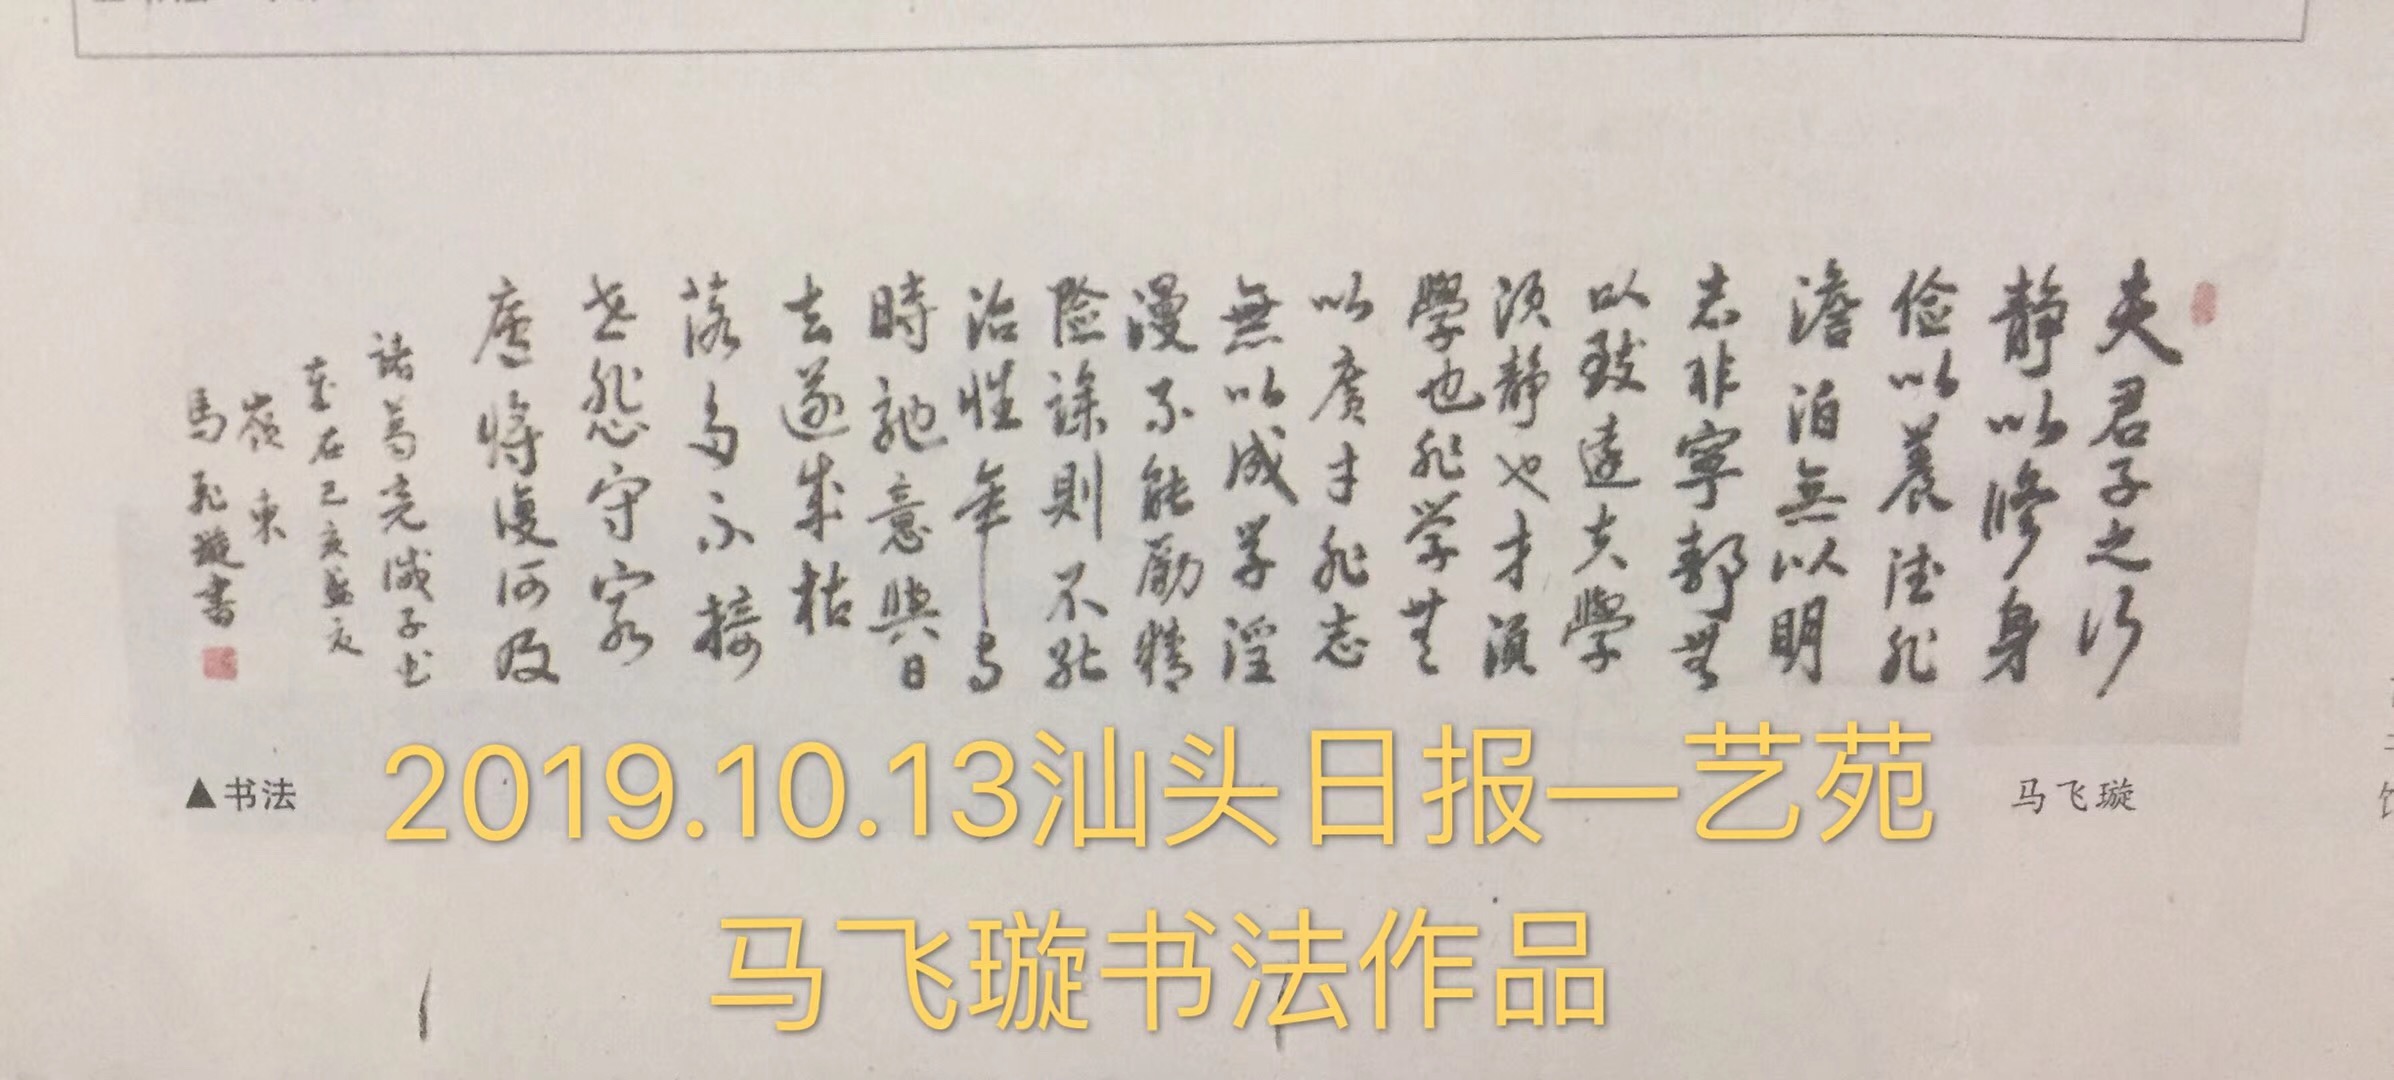 夫君子之行
静以修身
俭以養德非
澹泊無以明
志非寧静無
以致遠夫學
須静也才須
學也非学無
以廣才非志
無以成学淫
漫不能励精
险躁則不能
治性年与
時馳意與日
去遂成枯
落多不接
世悲守窮
廬將復何及
諸葛亮誡子书
岁在己亥盛夏
嶺東
馬飛璇書
▲书法
马飞璇
2019.10.13汕头日报—艺苑
马飞璇书法作品